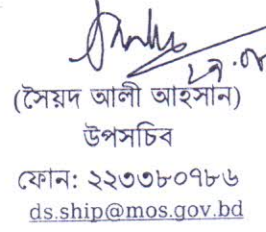 ২৭.০৮
(সৈয়দ আলী আহসান)
উপসচিব
ফোন: ২২৩৩৮০৭৮৬
ds.ship@mos.gov.bd